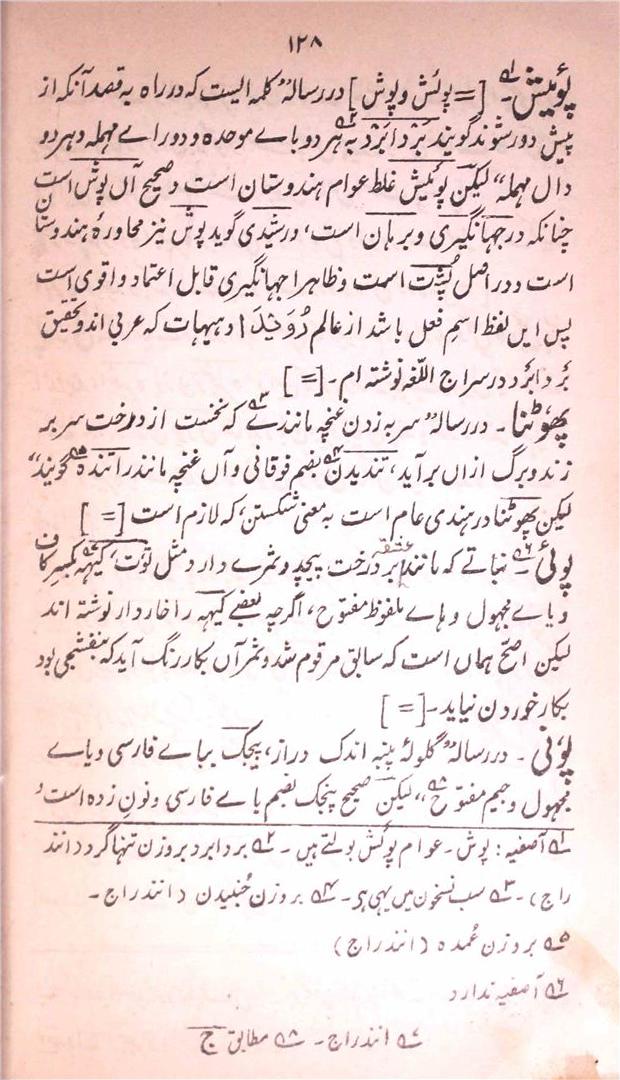 ۱۲۸
پوئیش۔ ؎۱ [= پوئش و پوش] در رسالہ "کلمہ ایست کہ در راہ بہ قصد آنکہ از
پیش دور شوند گویند بَرْد اَبَرْد ؎۲ بہ ہر دو باے موحدہ و دو راے مہملہ و ہر دو
دال مہملہ" لیکن پوئیش غلط عوام ہندوستان است و صحیح آں پوش است
چنانکہ در جہانگیری و برہان است، و رشیدی گوید پوش نیز محاورۂ ہندوستان
است و در اصل پُشت است و ظاہرا جہانگیری قابل اعتماد و اقوی است
پس ایں لفظ اسمِ فعل باشد از عالم رُوَیْدَ ا و ہیہات کہ عربی اند و تحقیق
بَرد اَبَرد در سراج اللغہ نوشتہ ام۔ [=]
پھوٹنا۔ در رسالہ "سر بہ زدن غنچہ مانندے ؎۳ کہ نخست از درخت سر بر
زند و برگ ازاں بر آید، تندیدن ؎۴ بضم فوقانی و آں غنچہ مانند را تندہ ؎۵ گویند"
لیکن پھوٹنا در ہندی عام است بہ معنی شکستن، کہ لازم است [=]
پوئی ؎۶۔ نباتے کہ مانند عشقہ بر درخت پیچد و ثمرے دارد مثل توت، کیَہہ ؎۷ بکسر کاف
و یاے مجہول و ہاے ملفوظ مفتوح، اگرچہ بعضے کیہہ را خاردار نوشتہ اند
لیکن اصح ہماں است کہ سابق مرقوم شد و ثمر آں بکار رنگ آید کہ بنفشجی بود
بکار خوردن نیاید۔ [=]
پونی۔ در رسالہ "گلولۂ پنبہ اندک دراز، پیجک بباے فارسی و یاے
مجہول و جیم مفتوح ؎۸"، لیکن صحیح پنجک بضم باے فارسی و نون زدہ است و
؎۱ آصفیہ: پوش۔ عوام پوئش بولتے ہیں۔ ؎۲ برد ابرد بروزن تنہا گرد (انند
راج)۔ ؎۳ سب نسخوں میں یہی ہے۔ ؎۴ بروزن جُنبیدن (انند راج)۔
؎۵ بروزن عُمدہ (انند راج)
؎۶ آصفیہ ندارد
؎۷ انند راج۔ ؎۸ مطابق ج